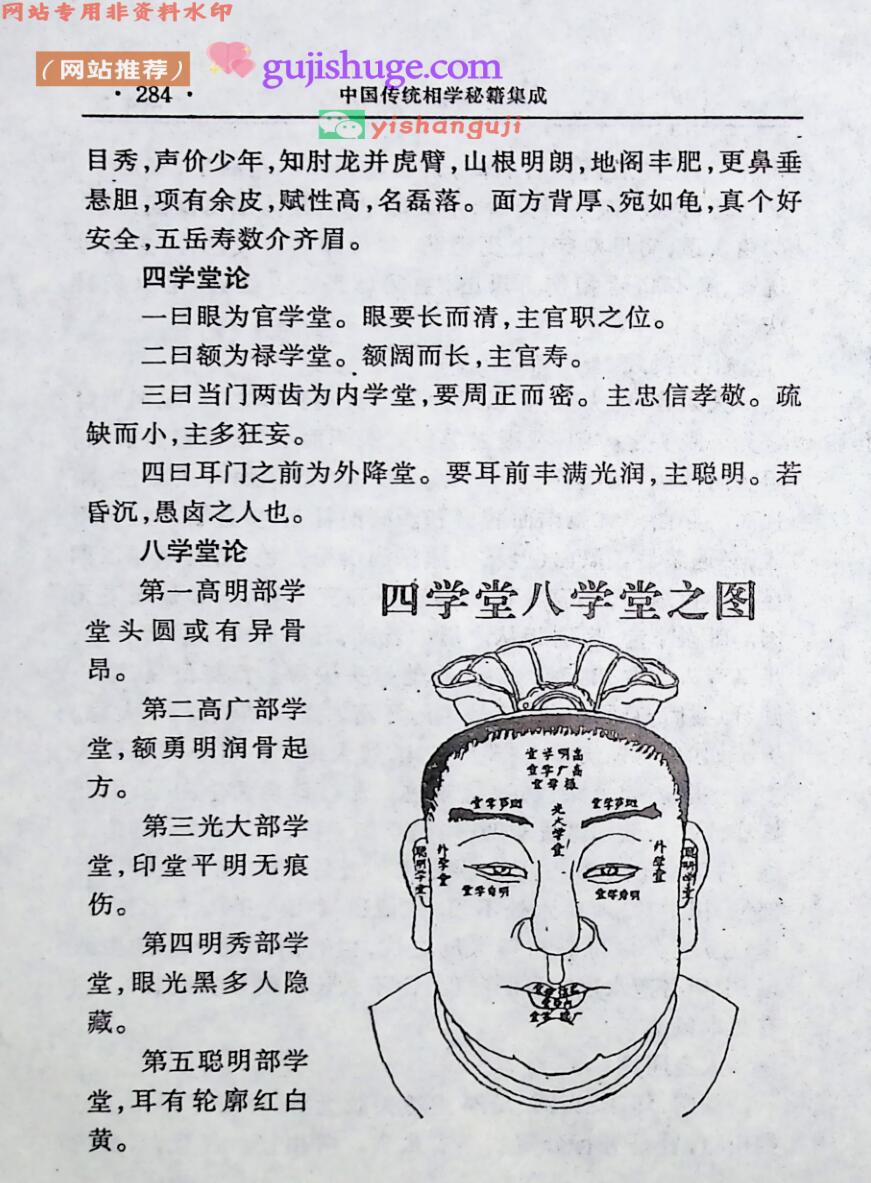 网站专用非资料水印
（网站推荐）
gujishuge.com
·284·
中国传统相学秘籍集成
yishanguji
目秀，声价少年，知肘龙并虎臂，山根明朗，地阁丰肥，更鼻垂
悬胆，项有余皮，赋性高，名磊落。面方背厚、宛如龟，真个好
安全，五岳寿数介齐眉。
四学堂论
一曰眼为官学堂。眼要长而清，主官职之位。
二曰额为禄学堂。额阔而长，主官寿。
三曰当门两齿为内学堂，要周正而密。主忠信孝敬。疏
缺而小，主多狂妄。
四曰耳门之前为外降堂。要耳前丰满光润，主聪明。若
昏沉，愚卤之人也。
八学堂论
第一高明部学
堂头圆或有异骨
昂。
第二高广部学
堂，额勇明润骨起
方。
第三光大部学
堂，印堂平明无痕
伤。
第四明秀部学
堂，眼光黑多人隐
藏。
第五聪明部学
堂，耳有轮廓红白
黄。
四学堂八学堂之图
堂学明高
堂学广高
堂学禄
光大学堂
堂学笋班
堂学笋班
外学堂
外学堂
聪明学堂
堂学秀明
堂学秀明